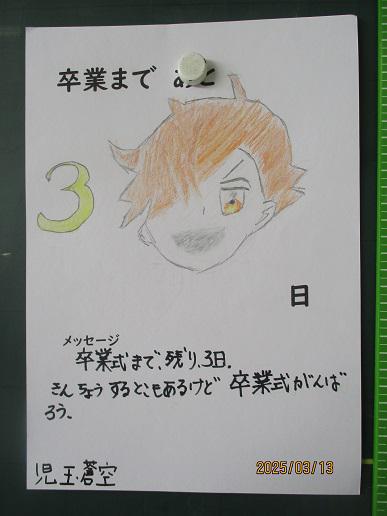 卒業まで あと
3
日
メッセージ
卒業式まで、残り、3日.
きんちょうするところもあるけど 卒業式がんば
ろう。
児玉蒼空
2025/03/13